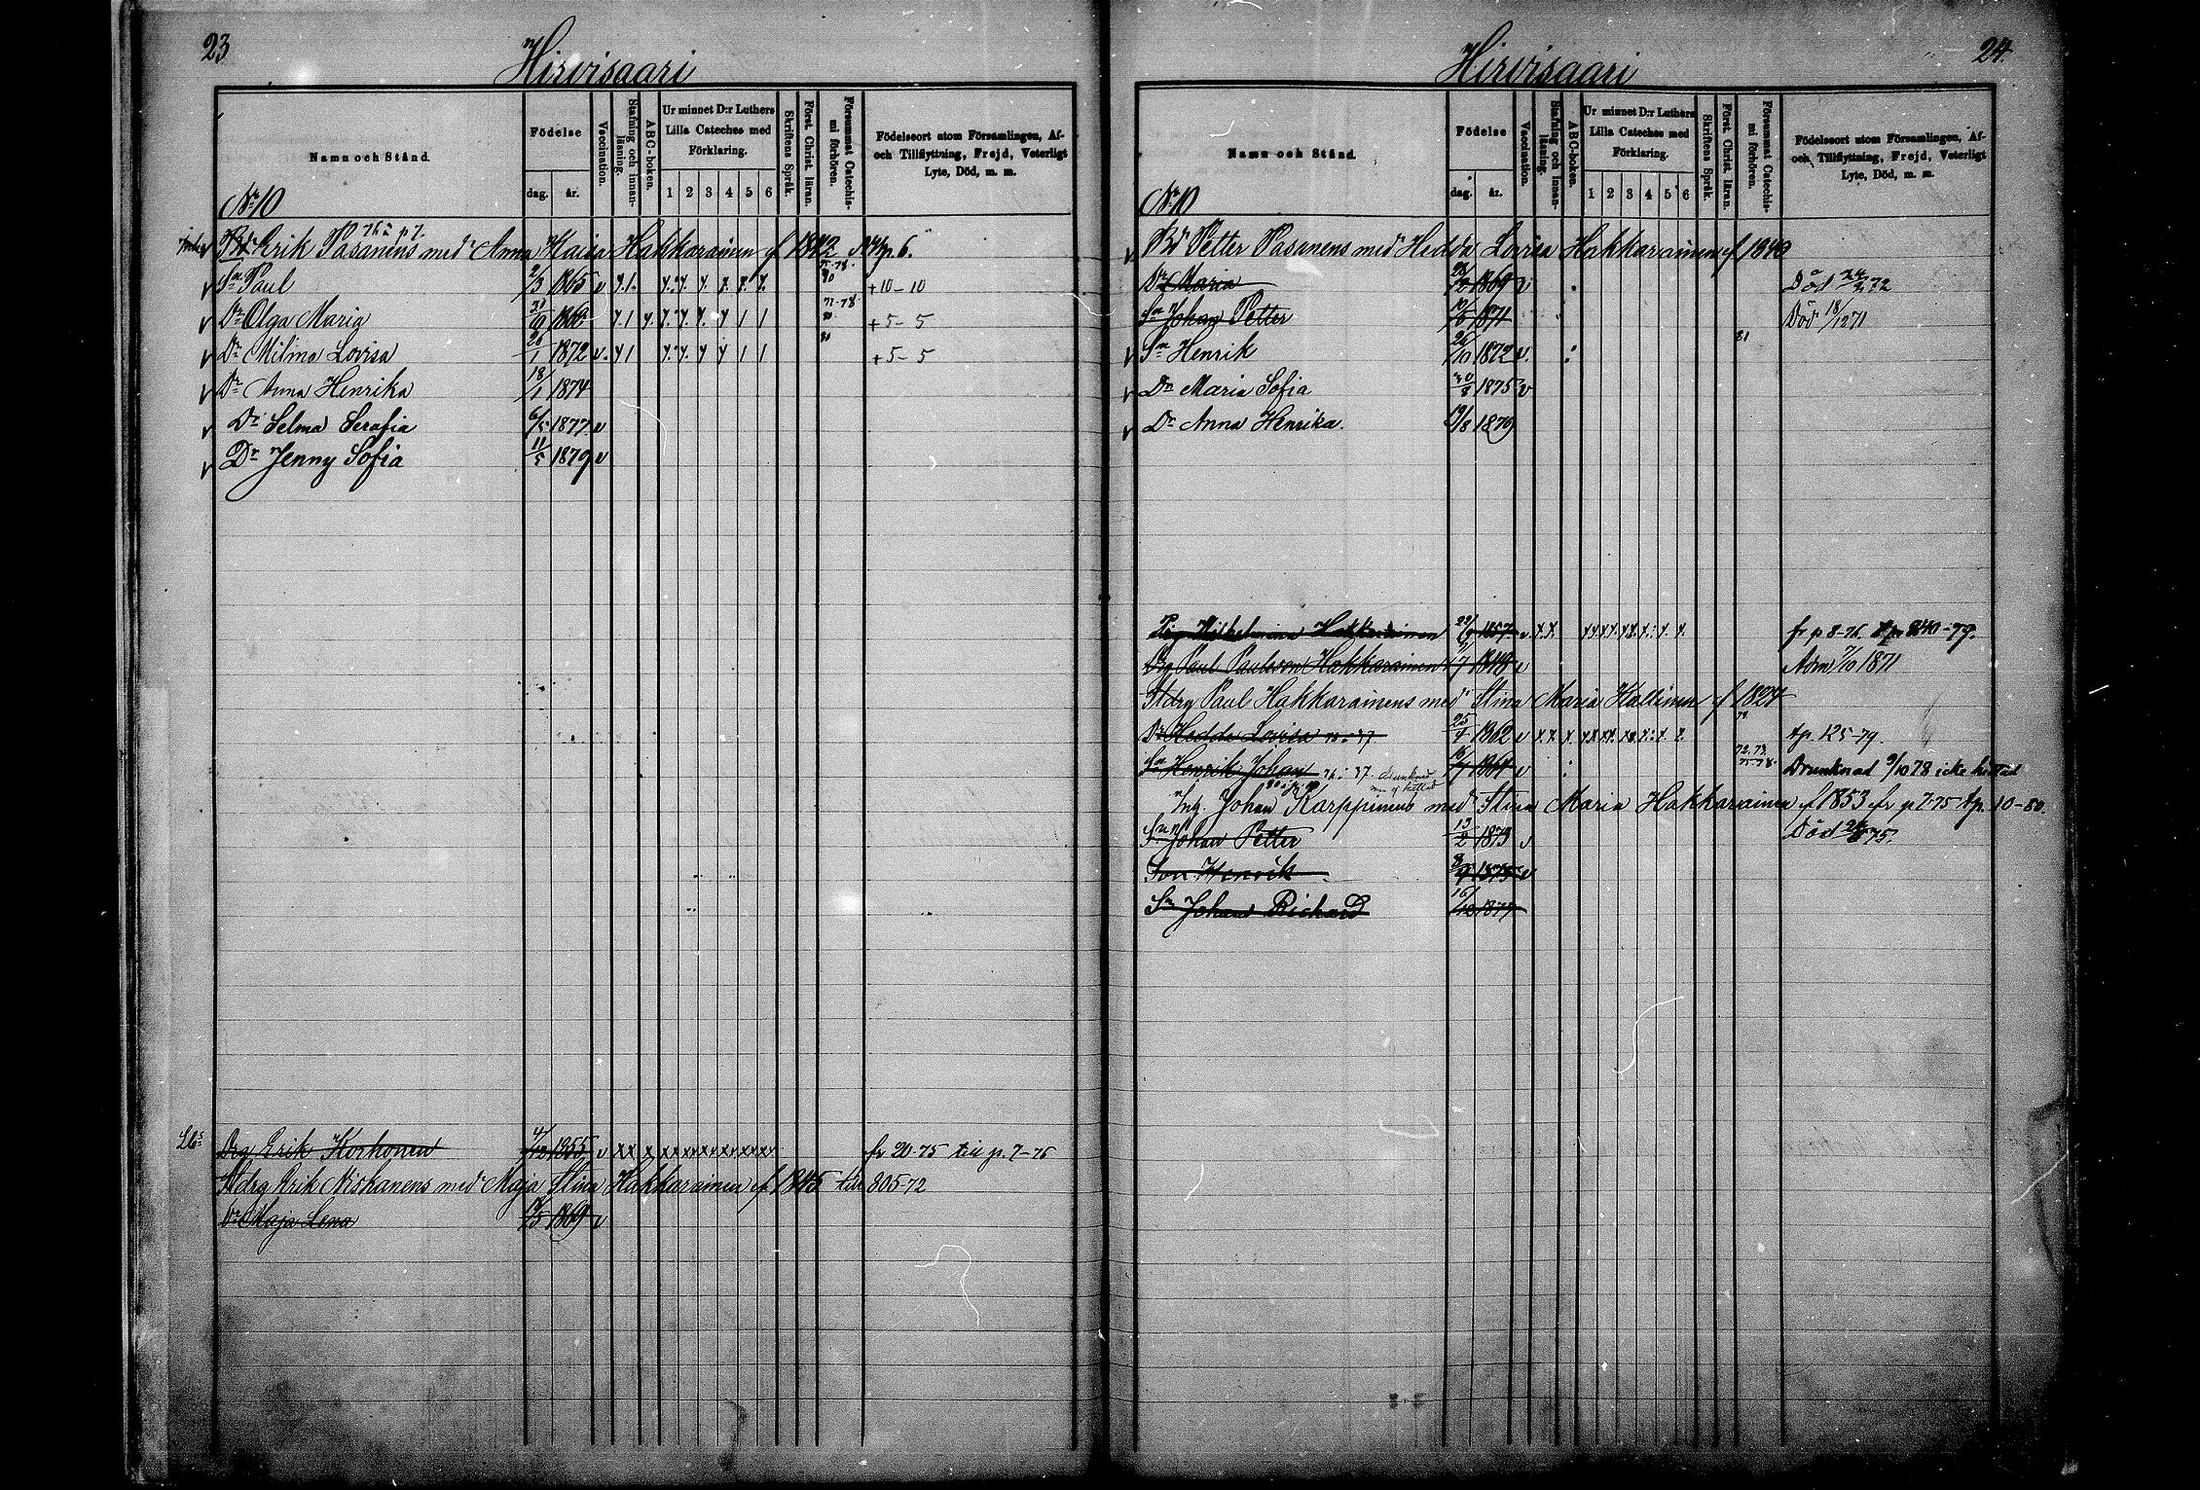 23
Hirvisaari
Namn och Stånd.
Födelse
dag. år.
Vaccination.
Stafning och innan-läsning.
ABC-boken.
Ur minnet D:r Luthers Lilla Cateches med Förklaring.
1 2 3 4 5 6
Skriftens Språk.
Först. Christ. läran.
Försummat Catechis-mi förhören.
Födelseort utom Församlingen, Af-
och Tillflyttning, Frejd, Veterligt
Lyte, Död, m. m.
No 10
Erik Pasanens med Anna Kaisa Hakkarainen f 1842 p 6.
Sn Paul 2/3 1865 v +10-10
Dr Olga Maria +5-5
Dr Milma Lovisa 26/1 1872 v. +5-5
Dr Anna Henrika 18/1 1874
Dr Selma Serafia 6/5 1877 v
Dr Jenny Sofia 11/5 1879 v
Drg Erik Korhonen 1855 v xx x fr 20-75 till p. 7-76
Stdrg Erik Niskanens med Maja Stina Hakkarainen f 1845 till 805-72
Dr Maja Lena 1869 v
24.
Hirvisaari
Namn och Stånd.
Födelse
dag. år.
Vaccination.
Stafning och innan-läsning.
ABC-boken.
Ur minnet D:r Luthers Lilla Cateches med Förklaring.
1 2 3 4 5 6
Skriftens Språk.
Först. Christ. läran.
Försummat Catechis-mi förhören.
Födelseort utom Församlingen, Af-
och Tillflyttning, Frejd, Veterligt
Lyte, Död, m. m.
No 10
Bd Petter Pasanens med Hedda Lovisa Hakkarainen f 1840
Dr Maria 1869 v Död 72
Sn Johan Petter 1871 Död 18/12 71
Sn Henrik 26/10 1872 v. 81
Dr Maria Sofia 1875 v
Dr Anna Henrika. 19/8 1879
Pig Wilhelmina Hakkarainen 1857 v fr p 8-76.
Drg Paul Paulsson Hakkarainen 1848 v 7/10 1871
Stdrg Paul Hakkarainens med Stina Maria Kallinen f 1824
Dr Hedda Lovisa 25/7 1862 v 125-79.
Sn Henrik Johan v Drunknad 9/10 78 icke hittad
Ing. Johan Karppinens med Stina Maria Hakkarainen f 1853 fr p 7-75 10-80.
Sn Johan Petter 13/2 1873 v Död 75.
Son Henrik 1875 v
Sn Johan Richard 16/ 1877